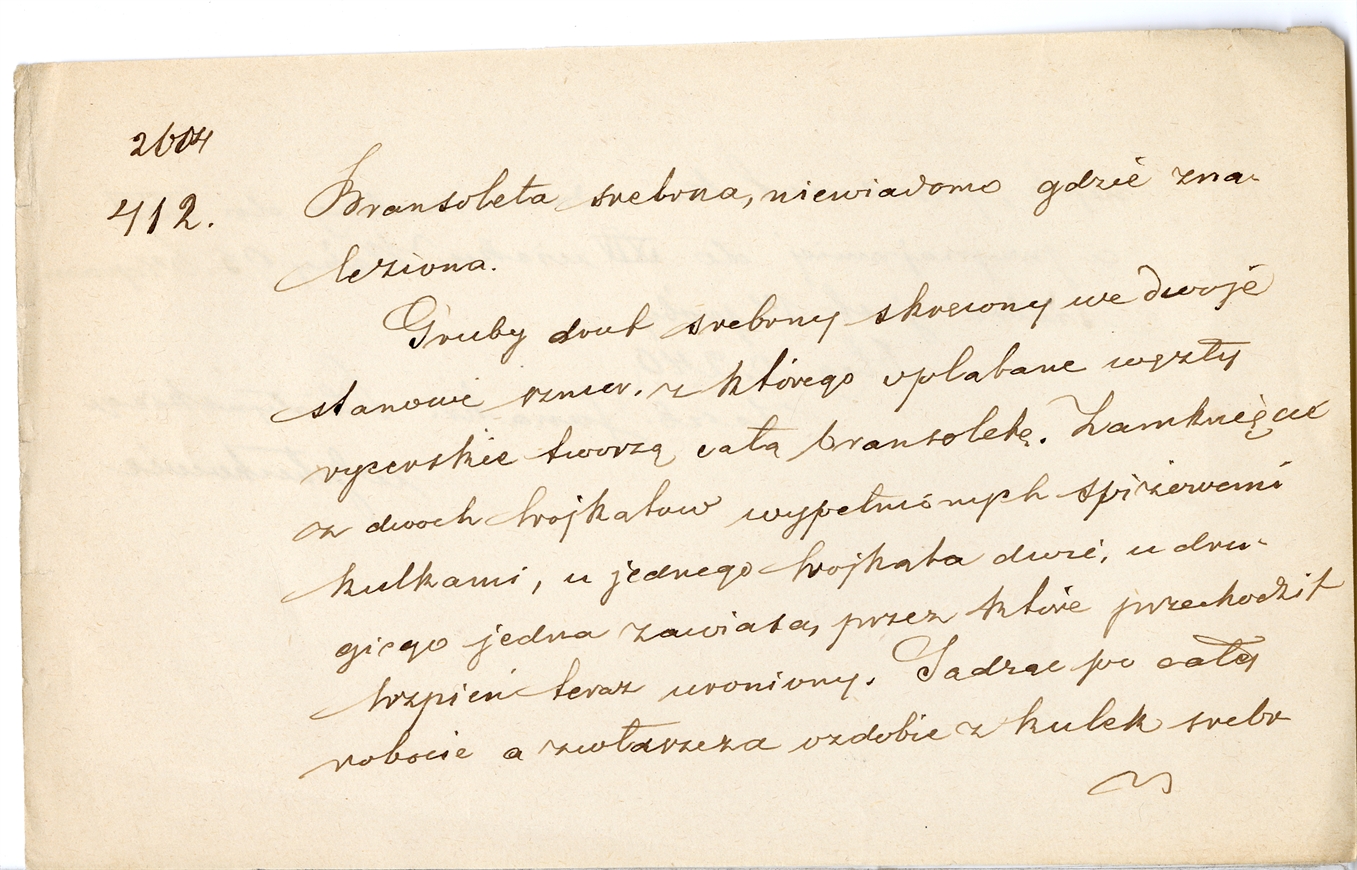 2604
412. Bransoleta srebrna, niewiadomo gdzie zna-
leziona.
Gruby drut srebrny skręcony we dwoje
stanowi sznur, z którego oplatane węzły
rycerskie tworzą całą bransoletkę. Zamknięcie
z dwoch trójkatow wypełnionych spiżowemi
kulkami, u jednego trojkata dwie, u dru-
giego jedna zawiasa, przez które przechodził
trzpień teraz uroniony. Sadząc po całej
robocie a zwłaszcza ozdobie z kulek srebr